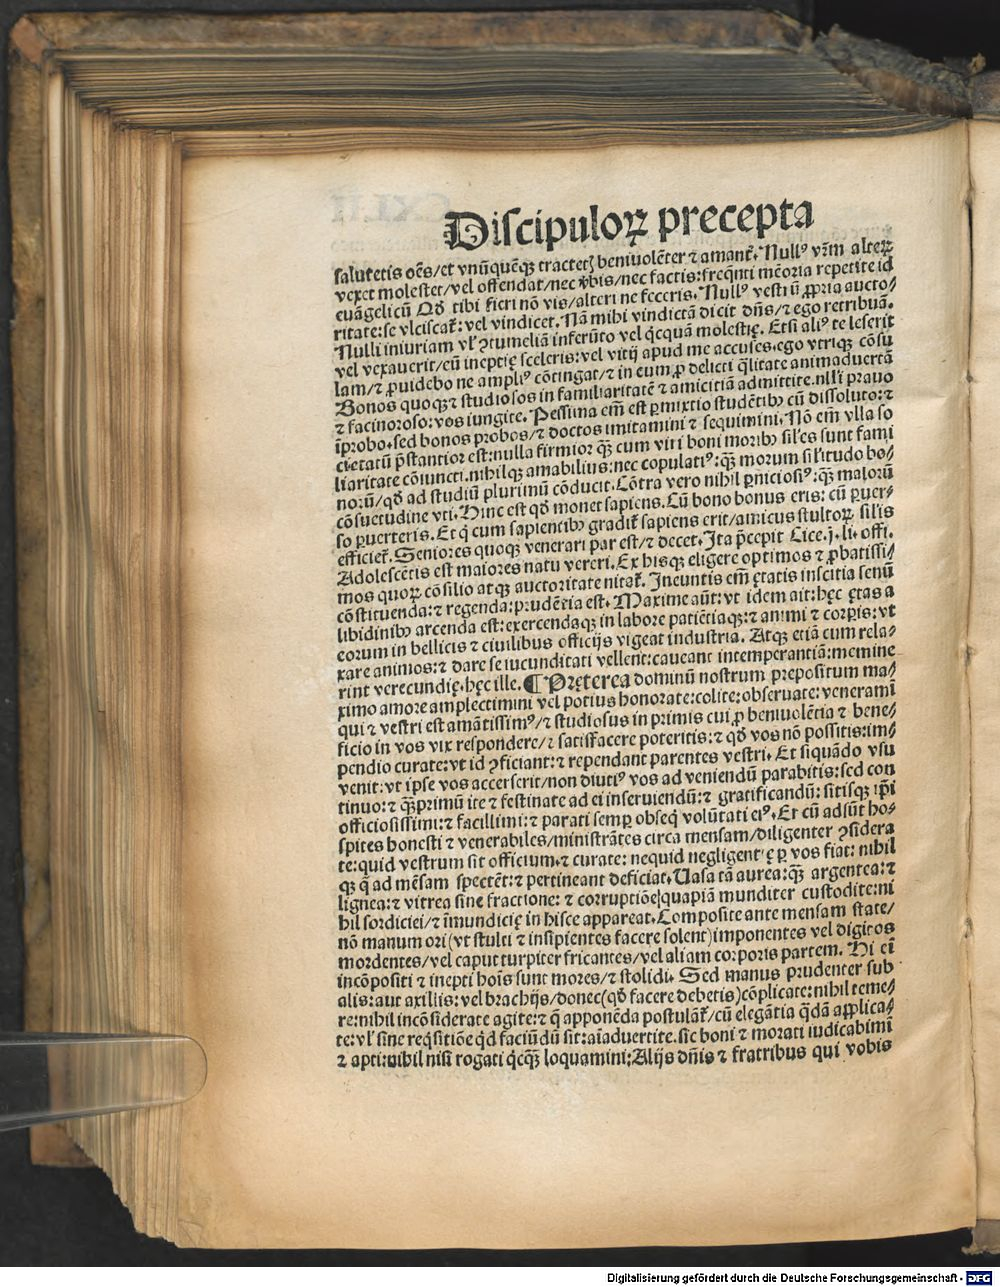 Discipuloꝝ precepta
salutetis oēs/et vnūquēqꝫ tractetꝫ beniuolēter ⁊ amant̄. Nullꝰ vr̄m alteꝝ
vexet molestet/vel offendat/nec v̄bis/nec factis: freq̄nti mēoria repetite id
euāgelicū Qd̄ tibi fieri nō vis/alteri ne feceris. Nullꝰ vestrū ꝓpria aucto⸗
ritate: se vlciscat̄: vel vindicet. Nā mihi vindictā dicit dn̄s/⁊ ego retribuā.
Nulli iniuriam vl̓ ꝯtumeliā inferūto vel qͥcquā molestię. Etsi aliꝰ te leserit
vel vexauerit/cū ineptię sceleris: vel vitij apud me accuses. ego vtriqꝫ cōsu
lam/⁊ ꝓuidebo ne ampliꝰ cōtingat/⁊ in eum ꝓ delicti q̄litate animaduertā
Bonos quoqꝫ ⁊ studiosos in familiaritatē ⁊ amicitiā admittite. nlli prauo
⁊ facinoroso: vos iungite. Pessima em̄ est ꝑmixtio studētibꝰ cū dissoluto: ⁊
īprobo. sed bonos probos/⁊ doctos imitamini ⁊ sequimini. Nō em̄ vlla so
cietatū p̄stantior est: nulla firmior qꝫ̄ cum viri boni moribꝰ sil̓es sunt fami
liaritate cōiuncti. nihilqꝫ amabilius: nec copulatiꝰ: qꝫ̄ morum sil̓itudo bo⸗
norū/qd̄ ad studiū plurimū cōducit. Cōtra vero nihil ꝑniciosiꝰ: qꝫ̄ malorū
cōsuetudine vti. Hinc est qd̄ monet sapiens. Cū bono bonus eris: cū ꝑuer⸗
so ꝑuerteris. Et qͥ cum sapientibꝰ gradit̄ sapiens erit/amicus stultoꝝ sil̓is
efficiet̄. Seniores quoqꝫ venerari par est/⁊ decet. Ita p̄cepit Cice. j. li. offi.
Adolescētis est maiores natu vereri. Ex hisqꝫ eligere optimos ⁊ ꝓbatissi⸗
mos quoꝝ cōsilio atqꝫ auctoritate nitat̄. Ineuntis em̄ ętatis inscitia senū
cōstituenda: ⁊ regenda: prudētia est. Maxime aūt: vt idem ait: hęc ętas a
libidinibꝰ arcenda est: exercendaqꝫ in labore patiētiaqꝫ: ⁊ animi ⁊ corpis: vt
eorum in bellicis ⁊ ciuilibus officijs vigeat industria. Atqꝫ etiā cum rela⸗
xare animos: ⁊ dare se iucunditati vellent: caueant intemperantiā: memine⸗
rint verecundię. hęc ille. ¶ Pręterea dominū nostrum prepositum ma⸗
ximo amore amplectimini vel potius honorate: colite: obseruate: veneramī
qui ⁊ vestri est amātissimꝰ/⁊ studiosus in primis cui ꝓ beniuolētia ⁊ bene⸗
ficio in vos vix respondere/⁊ satisfacere poteritis: ⁊ qd̄ vos nō possitis: im⸗
pendio curate: vt id ꝯficiant: ⁊ rependant parentes vestri. Et siquādo vsu
venit: vt ipse vos accerserit/non diutiꝰ vos ad veniendū parabitis: sed con
tinuo: ⁊ qꝫ̄primū ite ⁊ festinate ad ei inseruiendū: ⁊ gratificandū: sitisqꝫ ip̄i
officiosissimi: ⁊ facillimi: ⁊ parati semꝑ obseqͥ volūtati eiꝰ. Et cū adsūt ho⸗
spites honesti ⁊ venerabiles/ministrātes circa mensam/diligenter ꝯsidera
te: quid vestrum sit officium. ⁊ curate: nequid negligentię ꝑ vos fiat: nihil
qꝫ q̄ ad mēsam spectēt: ⁊ pertineant deficiat. Uasa tā aurea: qꝫ̄ argentea: ⁊
lignea: ⁊ vitrea sine fractione: ⁊ corruptiōe quapiā munditer custodite: ni
hil sordiciei/⁊ īmundicię in hisce appareat. Composite ante mensam state/
nō manum ori (vt stulti ⁊ insipientes facere solent) imponentes vel digitos
mordentes/vel caput turpiter fricantes/vel aliam corporis partem. Hi ei̅
incōpositi ⁊ inepti hoīs sunt mores/⁊ stolidi. Sed manus prudenter sub
alis: aut axillis: vel brachijs/donec (qd̄ facere debetis) cōplicate: nihil teme⸗
re: nihil incōsiderate agite: ⁊ q̄ apponēda postulāt̄/cū elegātia qͣdā applica⸗
te: vl̓ sine reqͥsitiōe qͥd faciūdū sit: aīaduertite. sic boni ⁊ morati iudicabimī
⁊ apti: nihil nisi rogati qͥcqꝫ̄ loquamini: Alijs dn̄is ⁊ fratribus qui vobis
Digitalisierung gefördert durch die Deutsche Forschungsgemeinschaft - DFG